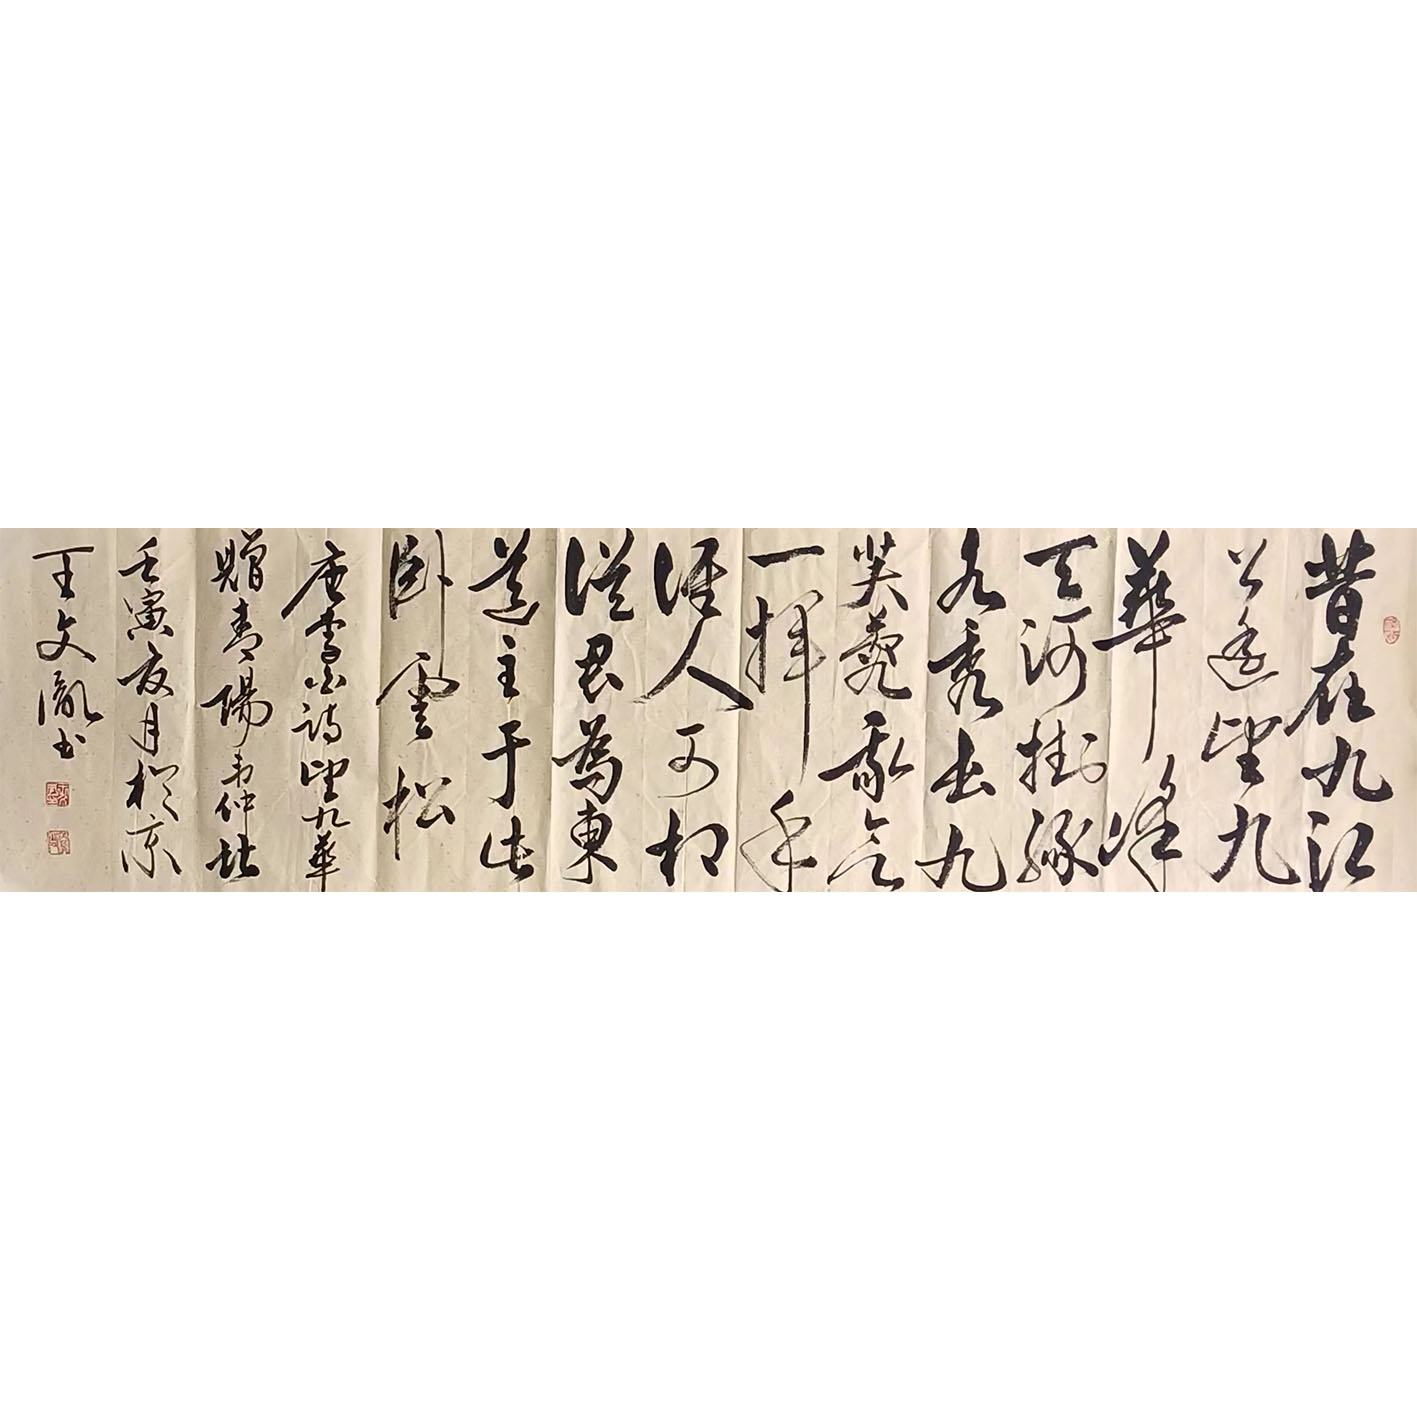 昔在九江
上遥望九
華峰
天河掛綠
水秀出九
芙蓉我欲
一揮手
誰人可相
從君為東
道主于此
卧雲松
唐李白詩望九華
贈青陽韋仲堪
壬寅夏月於京
王文胤书